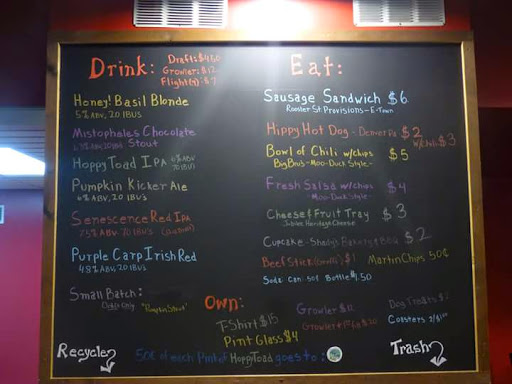 Drink:
Draft: $4.50
Growler: $12
Flight(4): $7
Honey! Basil Blonde
5% ABV, 20 IBUS
Mistopheles Chocolate
Stout
Hoppy Toad IPA 6% ABV
70 IBU'S
Pumpkin Kicker Ale
6% ABV, 20 IBU's
Senescence Red IPA
7.5% ABV, 70 IBU'S
Purple Carp Irish Red
4.8% ABV, 20 IBU'S
Small Batch:
Only "Pumpkin Stout"
Eat:
Sausage Sandwich $6
Rooster St. Provisions - E-Town
Hippy Hot Dog - Denver Pa $2
w/Chili $3
Bowl of Chili w/chips $5
Big Bru's - Moo-Duck Style -
Fresh Salsa w/chips $4
- Moo-Duck Style -
Cheese & Fruit Tray $3
Jubilee Heritage Cheese
Cupcake - Shady's Bakery & BBQ $2
Beef Stick $1 Martin Chips 50¢
Soda Can: 50¢ Bottle $1.50
Own:
T-Shirt $15
Pint Glass $4
Growler $12
Growler + Fill $20
Dog Treats $
Coasters 2/$1
Recycle?
50¢ of each Pint of Hoppy Toad goes to:
Trash?